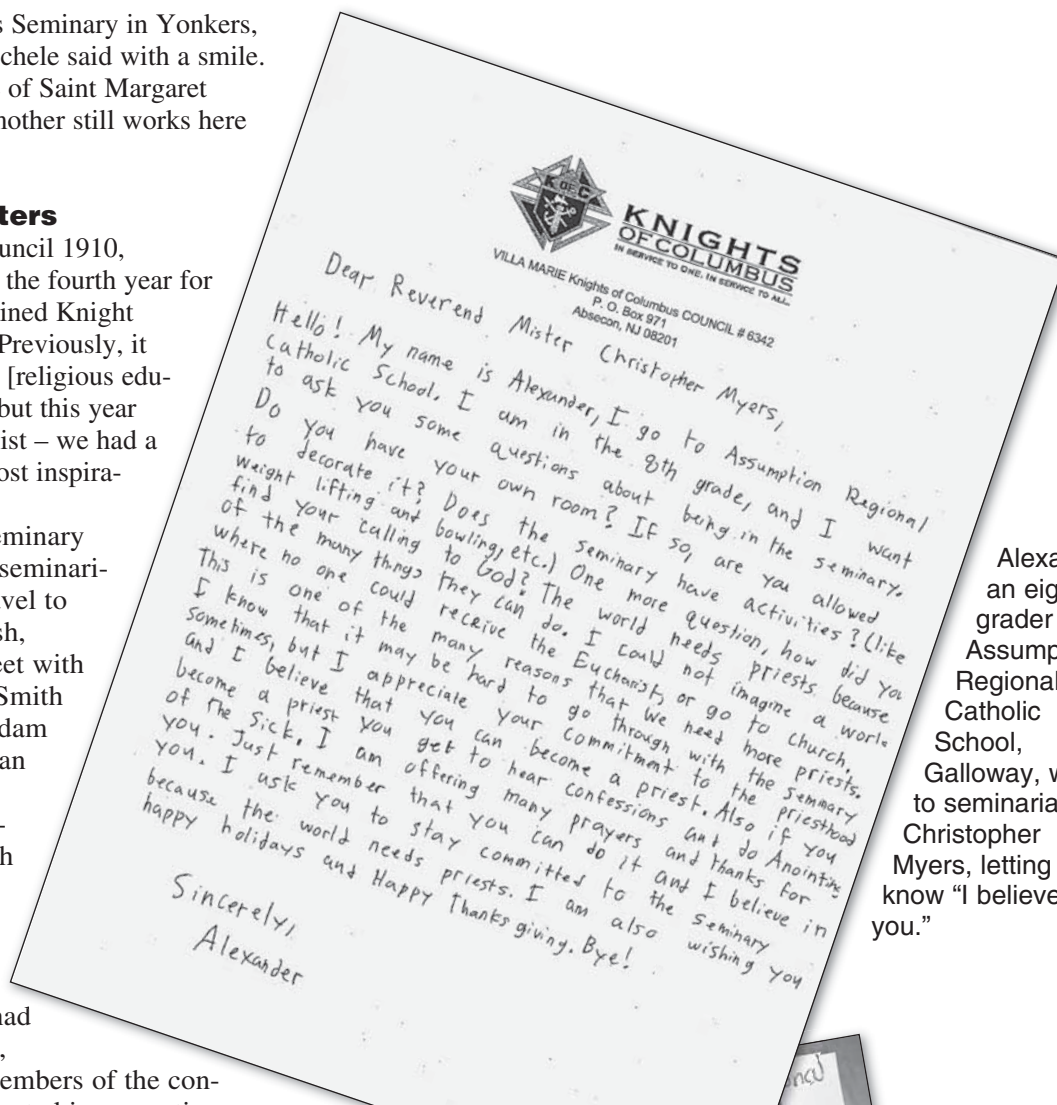 s Seminary in Yonkers,
chele said with a smile.
of Saint Margaret
nother still works here
ters
uncil 1910,
the fourth year for
ined Knight
Previously, it
[religious edu-
but this year
ist – we had a
ost inspira-
eminary
seminari-
avel to
sh,
eet with
Smith
dam
an
-
h
had
,
embers of the con-
K OF C
KNIGHTS
OF COLUMBUS
IN SERVICE TO ONE. IN SERVICE TO ALL.
VILLA MARIE Knights of Columbus COUNCIL # 6342
P. O. Box 971
Absecon, NJ 08201
Dear Reverend Mister Christopher Myers,
Hello! My name is Alexander, I go to Assumption Regional
Catholic School. I am in the 8th grade, and I want
to ask you some questions about being in the seminary.
Do you have your own room? If so, are you allowed
to decorate it? Does the seminary have activities? (like
weight lifting and bowling, etc.) One more question, how did you
find your calling to God? The world needs priests because
of the many things they can do. I could not imagine a world
where no one could receive the Eucharist, or go to church.
This is one of the many reasons that we need more priests.
I know that it may be hard to go through with the seminary
sometimes, but I appreciate your commitment to the priesthood
and I believe that you can become a priest. Also if you
become a priest you get to hear confessions and do Anointing
of the Sick. I am offering many prayers and thanks for
you. Just remember that you can do it and I believe in
you. I ask you to stay committed to the seminary
because the world needs priests. I am also wishing you
happy holidays and Happy Thanksgiving. Bye!
Sincerely,
Alexander
Alexa
an eig
grader
Assump
Regional
Catholic
School,
Galloway, w
to seminaria
Christopher
Myers, letting
know “I believe
you.”